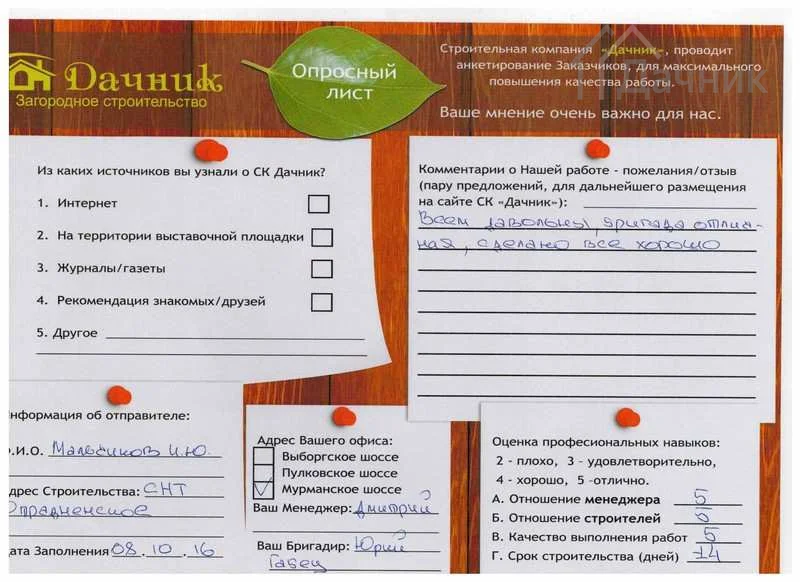 Дачник
Загородное строительство
Опросный
лист
Строительная компания «Дачник», проводит
анкетирование Заказчиков, для максимального
повышения качества работы.
Дачник
Ваше мнение очень важно для нас.
Из каких источников вы узнали о СК Дачник?
1. Интернет
2. На территории выставочной площадки
3. Журналы/газеты
4. Рекомендация знакомых/друзей
5. Другое
Комментарии о Нашей работе - пожелания/отзыв
(пару предложений, для дальнейшего размещения
на сайте СК «Дачник»):
Всем давольны, бригада отлич-
ная, сделано все хорошо
нформация об отправителе:
.И.О. Мальчиков И.Ю.
дрес Строительства: СНТ
Отрадненское
ата Заполнения 08.10.16
Адрес Вашего офиса:
Выборгское шоссе
Пулковское шоссе
Мурманское шоссе
Ваш Менеджер: Дмитрий
Ваш Бригадир: Юрий
Оценка профессиональных навыков:
2 - плохо, 3 - удовлетворительно,
4 - хорошо, 5 -отлично.
А. Отношение менеджера 5
Б. Отношение строителей 5
В. Качество выполнения работ 5
Г. Срок строительства (дней) 14